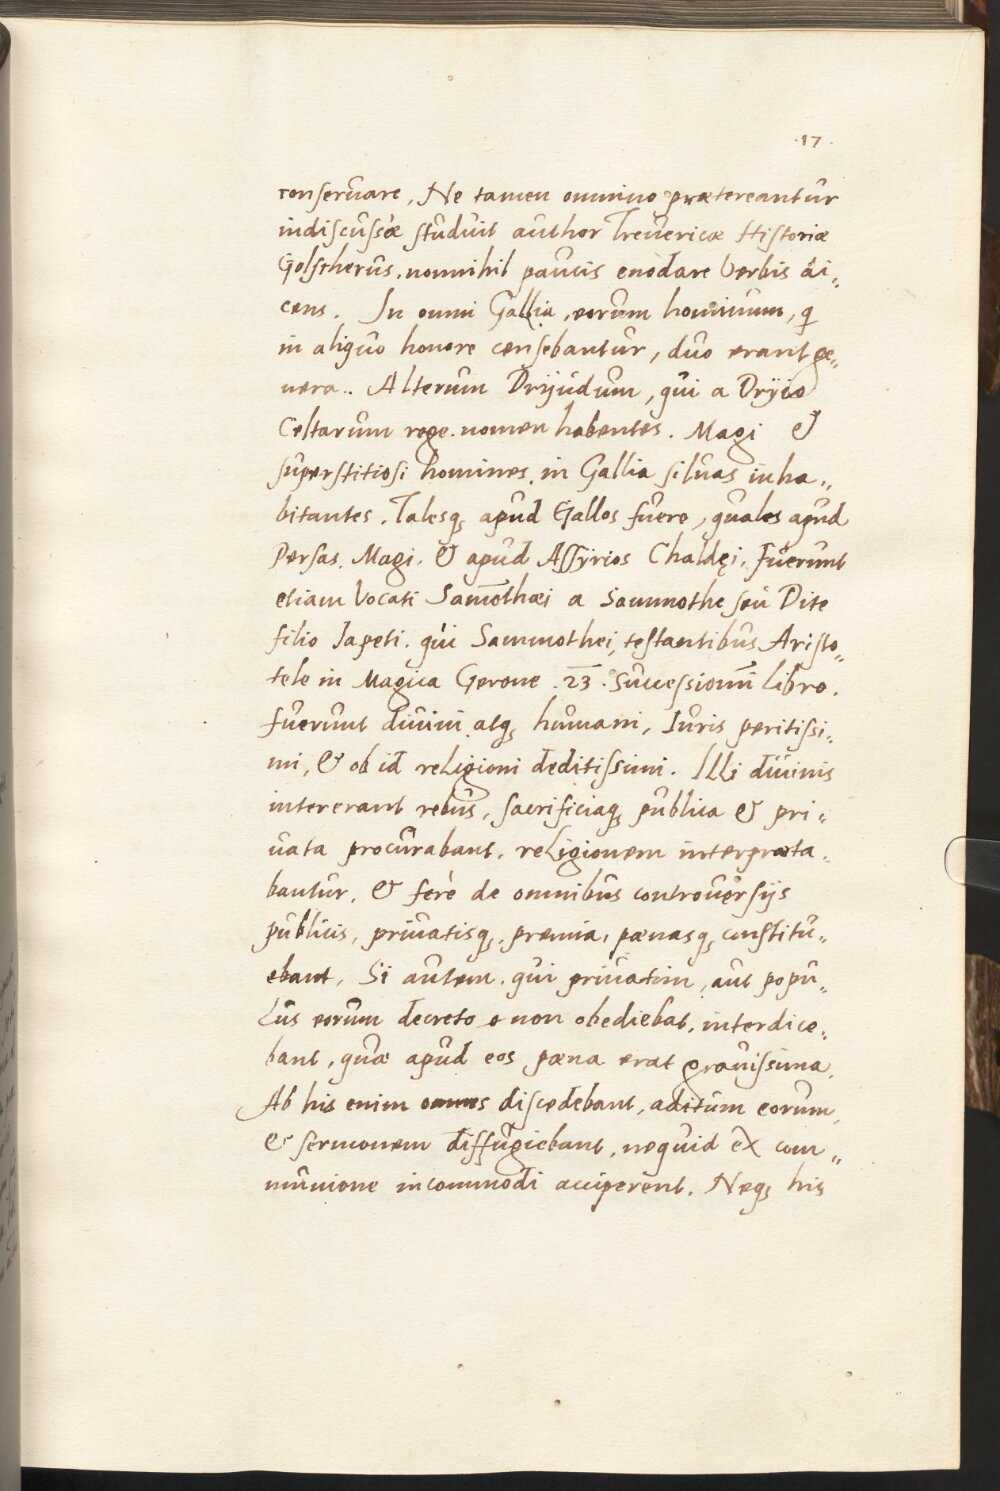 ·17·
conseruare, Ne tamen omnino prætereantur
indiscussæ studuit author Treuericæ Historiæ
Golscherus, nonnihil paucis enodare Verbis di„
cens. In omni Gallia, eorum hominum, q
in aliquo honore censebantur, duo erant ge„
nera.. Alterum Drijudum, qui a Dryio
Celtarum rege nomen habentes. Magi &
superstitiosi homines, in Gallia siluas inha„
bitantes. Talesq, apud Gallos fuere, quales apud
Persas, Magi. & apud Assyrios Chaldęi, Fuerunt
etiam Vocati Samōthæi a Samnothe seu Dite
filio Iapeti. qui Sammothei, testantibus Aristo„
tele in Magica Gerone .23. Successionū libro.
fuerunt diuini atq, humani, Iuris peritissi„
mi, & ob id religioni deditissimi. Illi diuinis
intererant rebus, sacrificiaq, publica & pri„
uata procurabant, religionem interpræta„
bantur, & ferè de omnibus controuersijs
publicis, priuatisq,, premia, pænasq, constitu„
ebant, Si autem, qui priuatim, aut popu„
lus eorum decreto non obediebat, interdice„
bant, quæ apud eos pæna erat grauissima.
Ab his enim omnes discedebant, aditum eorum,
& sermonem diffugiebant, nequid ex com„
munione incommodi acciperent. Neq, his